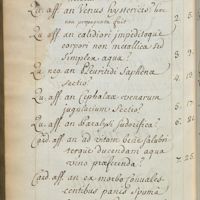 Qu. aff an Venus hystericis? hæc
non proposita fuit 2. 5.
Qu aff an calidiori impeditoque
corpori non metallica sed
Simplex aqua? 3.
Qu neg an Pleuritidi Saphena
Sectio? 4. 13.
Qu aff an Cephalææ venarum
jugularium Sectio? 6.
Qu aff an Paralysi sudorifica? 6.
Card aff an ad vitam bene salubri
terque ducendam aqua
vino præferenda? 7. 25.
Card aff an ex morbo convales
centibus panis spuma